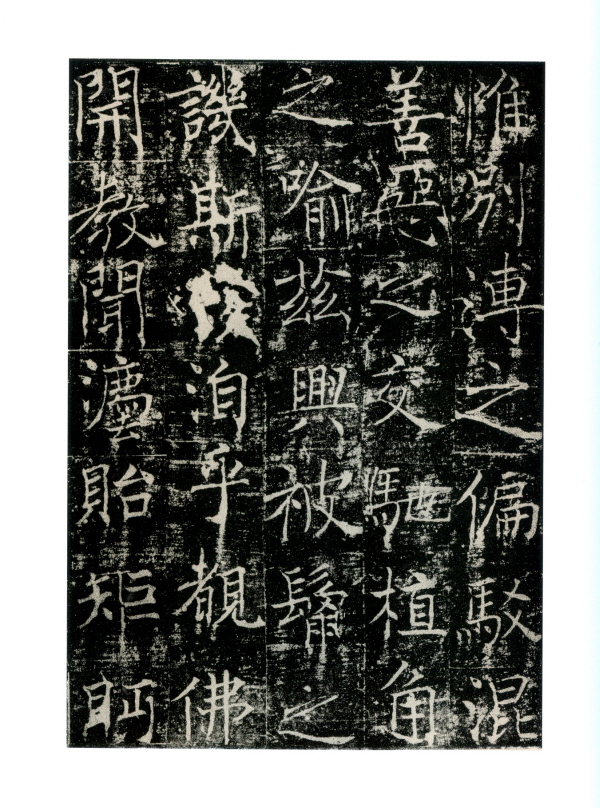 惟別溥之偏駁混
善惡之交馳植角
之喻茲興被之
譏斯洎乎佛
開教聞貽矩眄